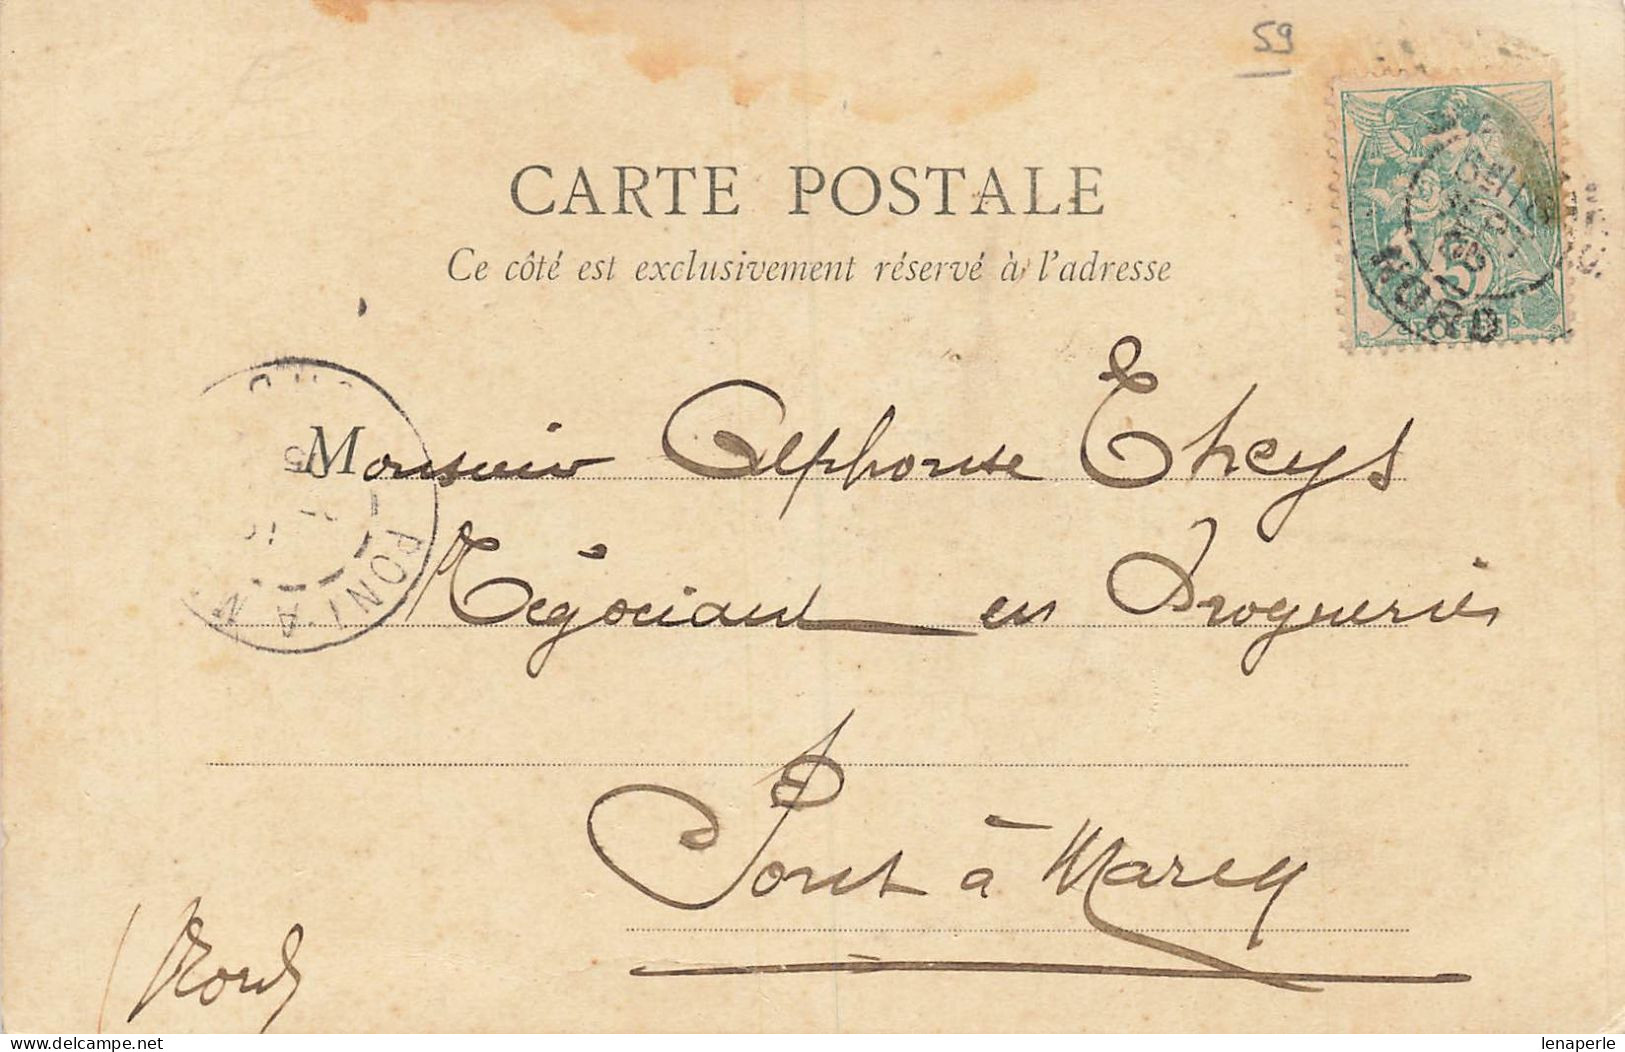 59
CARTE POSTALE
Ce côté est exclusivement réservé à l'adresse
NORD
POSTES
Monsieur Alphonse Theys
PONT-A-M
Négociant en Drogueries
Pont à Marcq
(Nord)
lenaperle